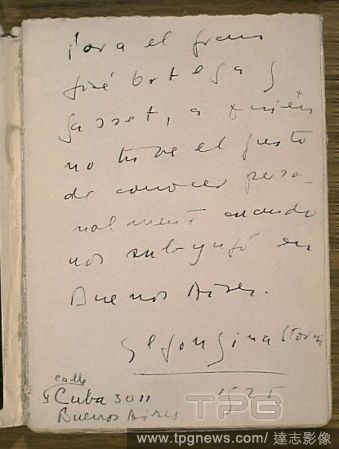 Para el gran
José Ortega y
Gasset, a quien
no tuve el gusto
de conocer perso-
nalmente cuando
nos subyugó en
Buenos Aires.
Alfonsina Storni
calle
Cuba 3011
Buenos Aires.
1925
TPG
www.tpgnews.com/達志影像